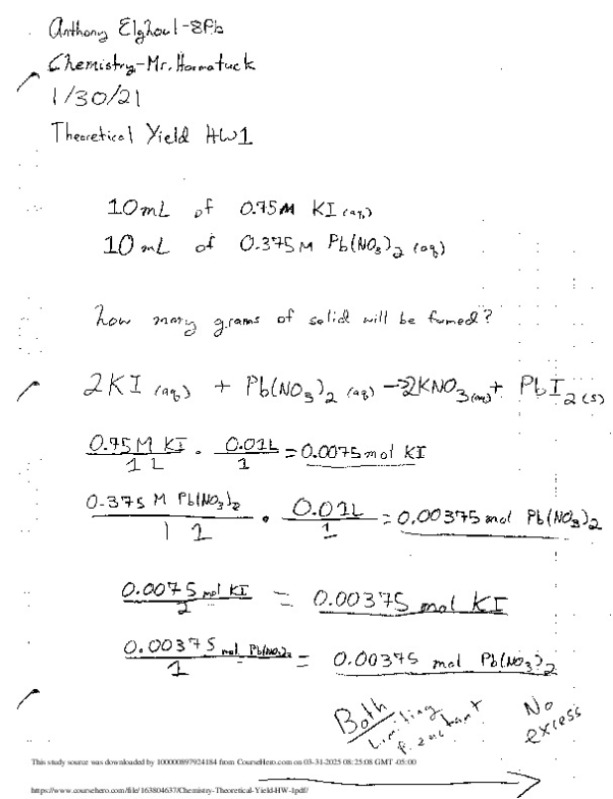 Anthony Elghoul-8Pb
Chemistry-Mr. Harmatuck
1/30/21
Theoretical Yield HW1
10mL of 0.75M KI (aq)
10mL of 0.375M Pb(NO3)2 (aq)
how many grams of solid will be formed?
2KI (aq) + Pb(NO3)2 (aq) → 2KNO3(aq) + PbI2(s)
0.75M KI / 1L · 0.01L / 1 = 0.0075 mol KI
0.375 M Pb(NO3)2 / 1L · 0.01L / 1 = 0.00375 mol Pb(NO3)2
0.0075 mol KI / 2 = 0.00375 mol KI
0.00375 mol Pb(NO3)2 / 1 = 0.00375 mol Pb(NO3)2
Both
Limiting
No
excess
This study source was downloaded by 100000897924184 from CourseHero.com on 03-31-2025 08:25:08 GMT -05:00
https://www.coursehero.com/file/163804637/Chemistry-Theoretical-Yield-HW-1pdf/